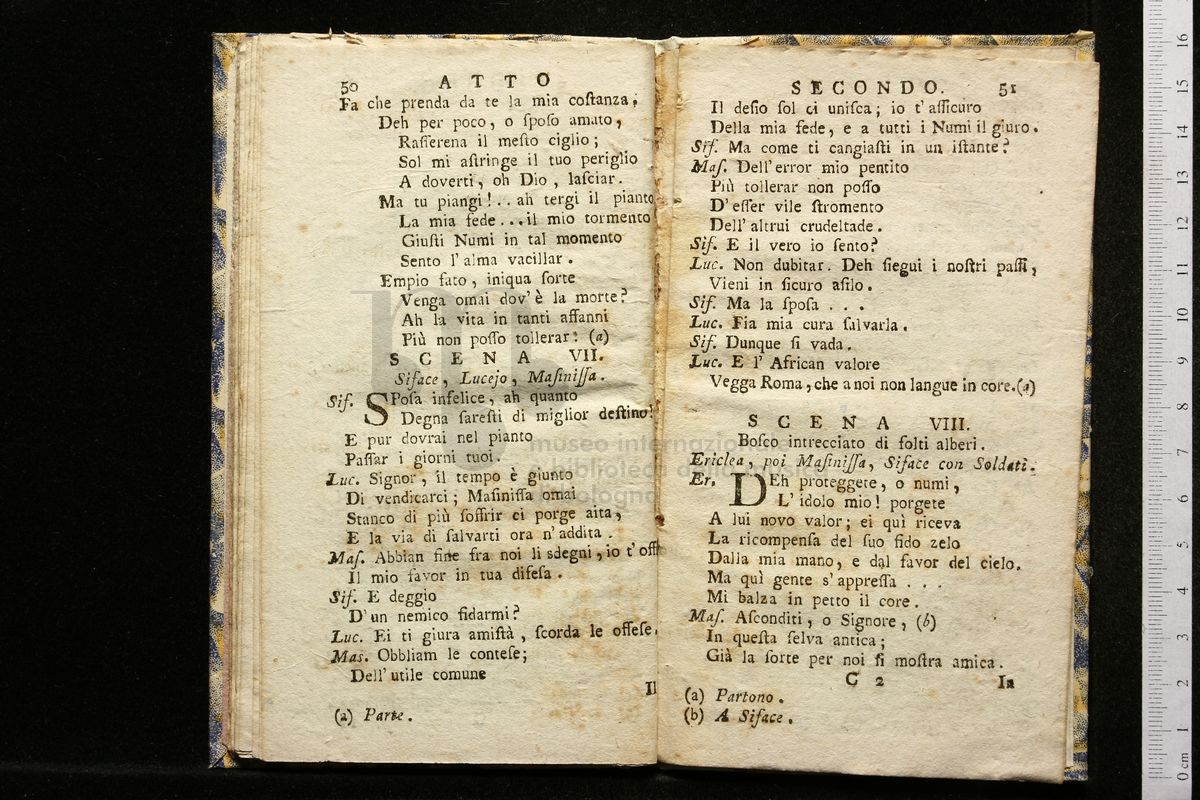 50 ATTO
Fa che prenda da te la mia coſtanza.
Deh per poco, o ſpoſo amato,
Raſſerena il meſto ciglio;
Sol mi aſtringe il tuo periglio
A doverti, oh Dio, laſciar.
Ma tu piangi!.. ah tergi il pianto
La mia fede...il mio tormento
Giuſti Numi in tal momento
Sento l'alma vacillar.
Empio fato, iniqua ſorte
Venga omai dov'è la morte?
Ah la vita in tanti affanni
Più non poſſo tollerar: (a)
SCENA VII.
Siface, Lucejo, Maſiniſſa.
Sif. SPoſa infelice, ah quanto
Degna ſareſti di miglior deſtino!
E pur dovrai nel pianto
Paſſar i giorni tuoi.
Luc. Signor, il tempo è giunto
Di vendicarci; Maſiniſſa omai
Stanco di più ſoffrir ci porge aita,
E la via di ſalvarti ora n'addita.
Maſ. Abbian fine fra noi li sdegni, io t'off
Il mio favor in tua difeſa.
Sif. E deggio
D'un nemico fidarmi?
Luc. Ei ti giura amiſtà, ſcorda le offeſe.
Mas. Obbliam le conteſe;
Dell'utile comune
Il
(a) Parte.
SECONDO. 51
Il deſio ſol ci uniſca; io t'aſſicuro
Della mia fede, e a tutti i Numi il giuro.
Sif. Ma come ti cangiaſti in un iſtante?
Maſ. Dell'error mio pentito
Più tollerar non poſſo
D'eſſer vile ſtromento
Dell'altrui crudeltade.
Sif. E il vero io ſento?
Luc. Non dubitar. Deh ſiegui i noſtri paſſi,
Vieni in ſicuro aſilo.
Sif. Ma la ſpoſa . . .
Luc. Fia mia cura ſalvarla.
Sif. Dunque ſi vada.
Luc. E l'African valore
Vegga Roma, che a noi non langue in core.(a)
SCENA VIII.
Boſco intrecciato di folti alberi.
Ericlea, poi Maſiniſſa, Siface con Soldati.
Er. DEh proteggete, o numi,
L'idolo mio! porgete
A lui novo valor; ei quì riceva
La ricompenſa del ſuo fido zelo
Dalla mia mano, e dal favor del cielo.
Ma quì gente s'appreſſa . . .
Mi balza in petto il core.
Maſ. Aſconditi, o Signore, (b)
In queſta ſelva antica;
Già la ſorte per noi ſi moſtra amica.
C 2 In
(a) Partono.
(b) A Siface.
museo internazionale
e biblioteca della musica
di bologna
16
15
14
13
12
11
10
9
8
7
6
5
4
3
2
1
0 cm